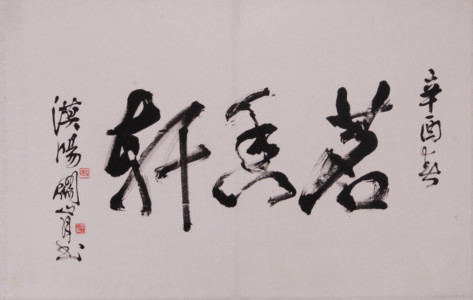 辛酉春
茗香軒
漠陽關山月書